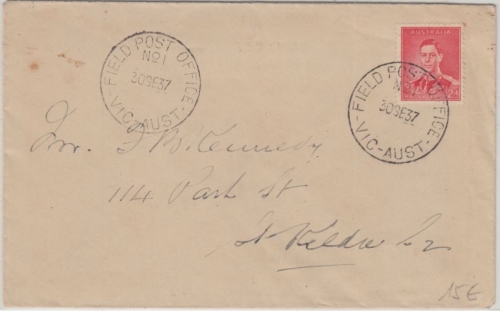 FIELD POST OFFICE
No1
30SE37
VIC-AUST-
AUSTRALIA
FIELD POST OFFICE
30SE37
VIC-AUST-
Kennedy
114 Park St
St Kilda
15€